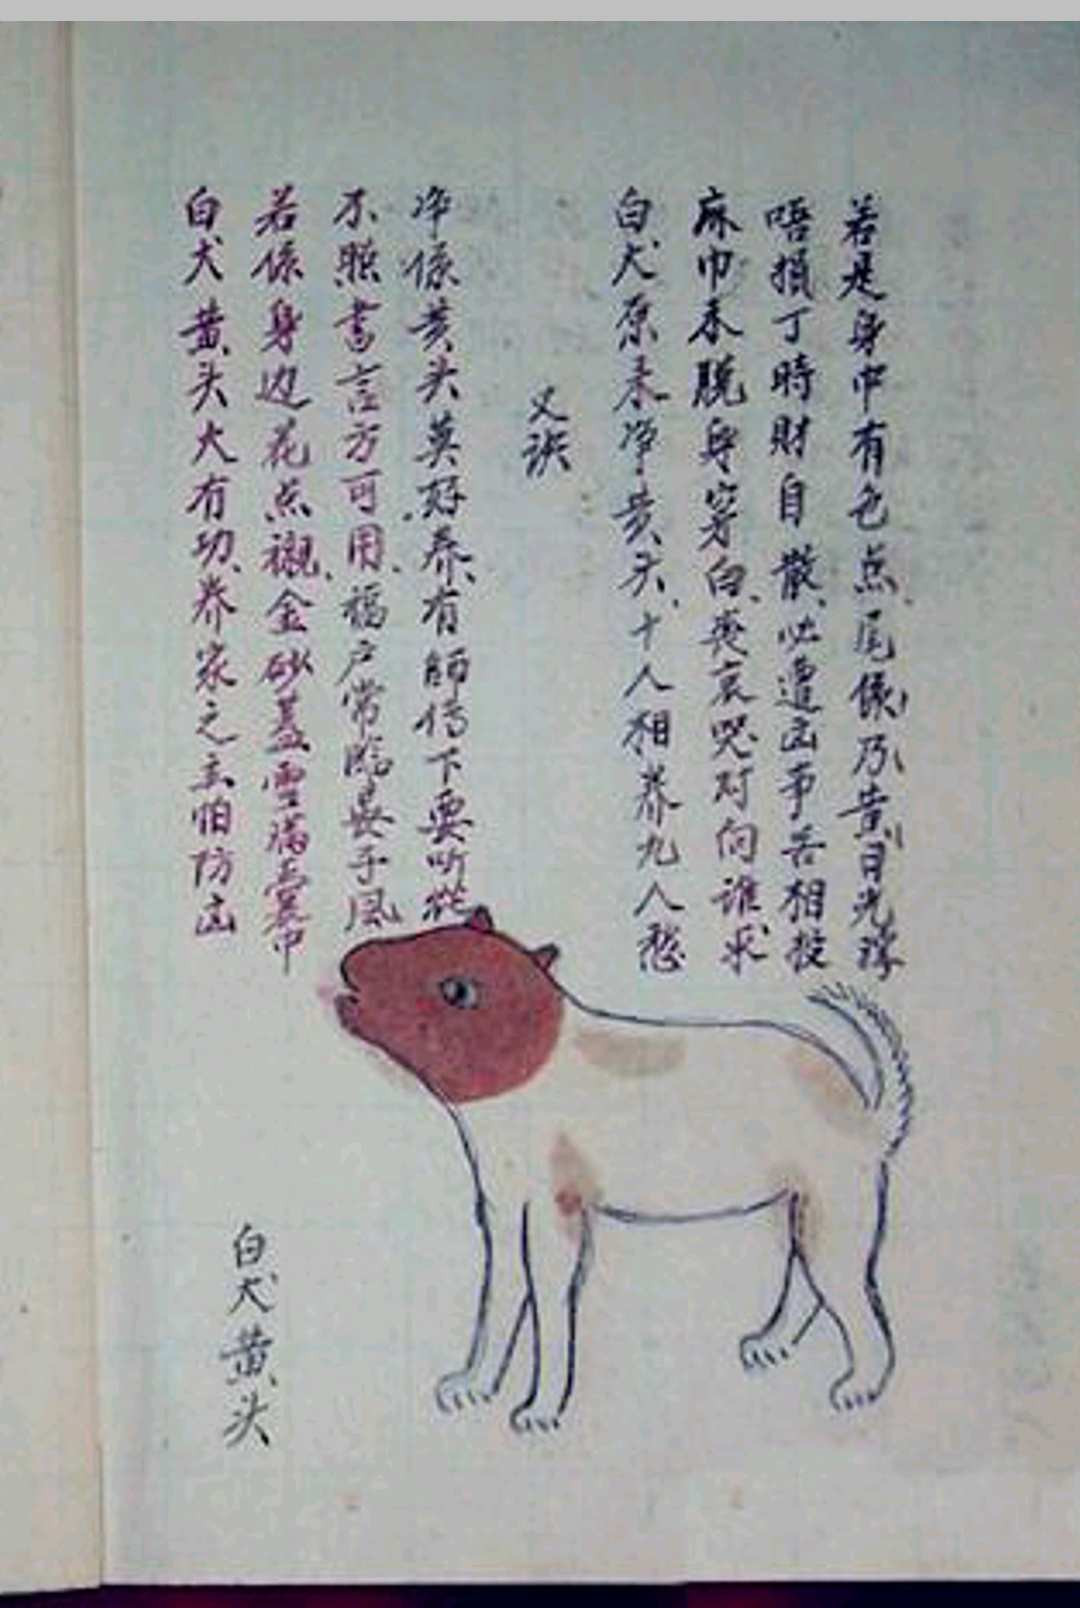 白犬黄头大有功、养家之主怕防凶
若係身边花点襯、金砂蓋雪满囊中
不照書言方可用、福户常臨子風
净係黄头英好养、有師傅下要听從
又訣
白犬原来净黄头、十人相养九人愁
麻巾未脱身穿白、丧哀哭对向谁求
唔損丁時財自散、必遭凶事苦相投
若是身中有色点、尾係乃黄目光珠
白犬黄头